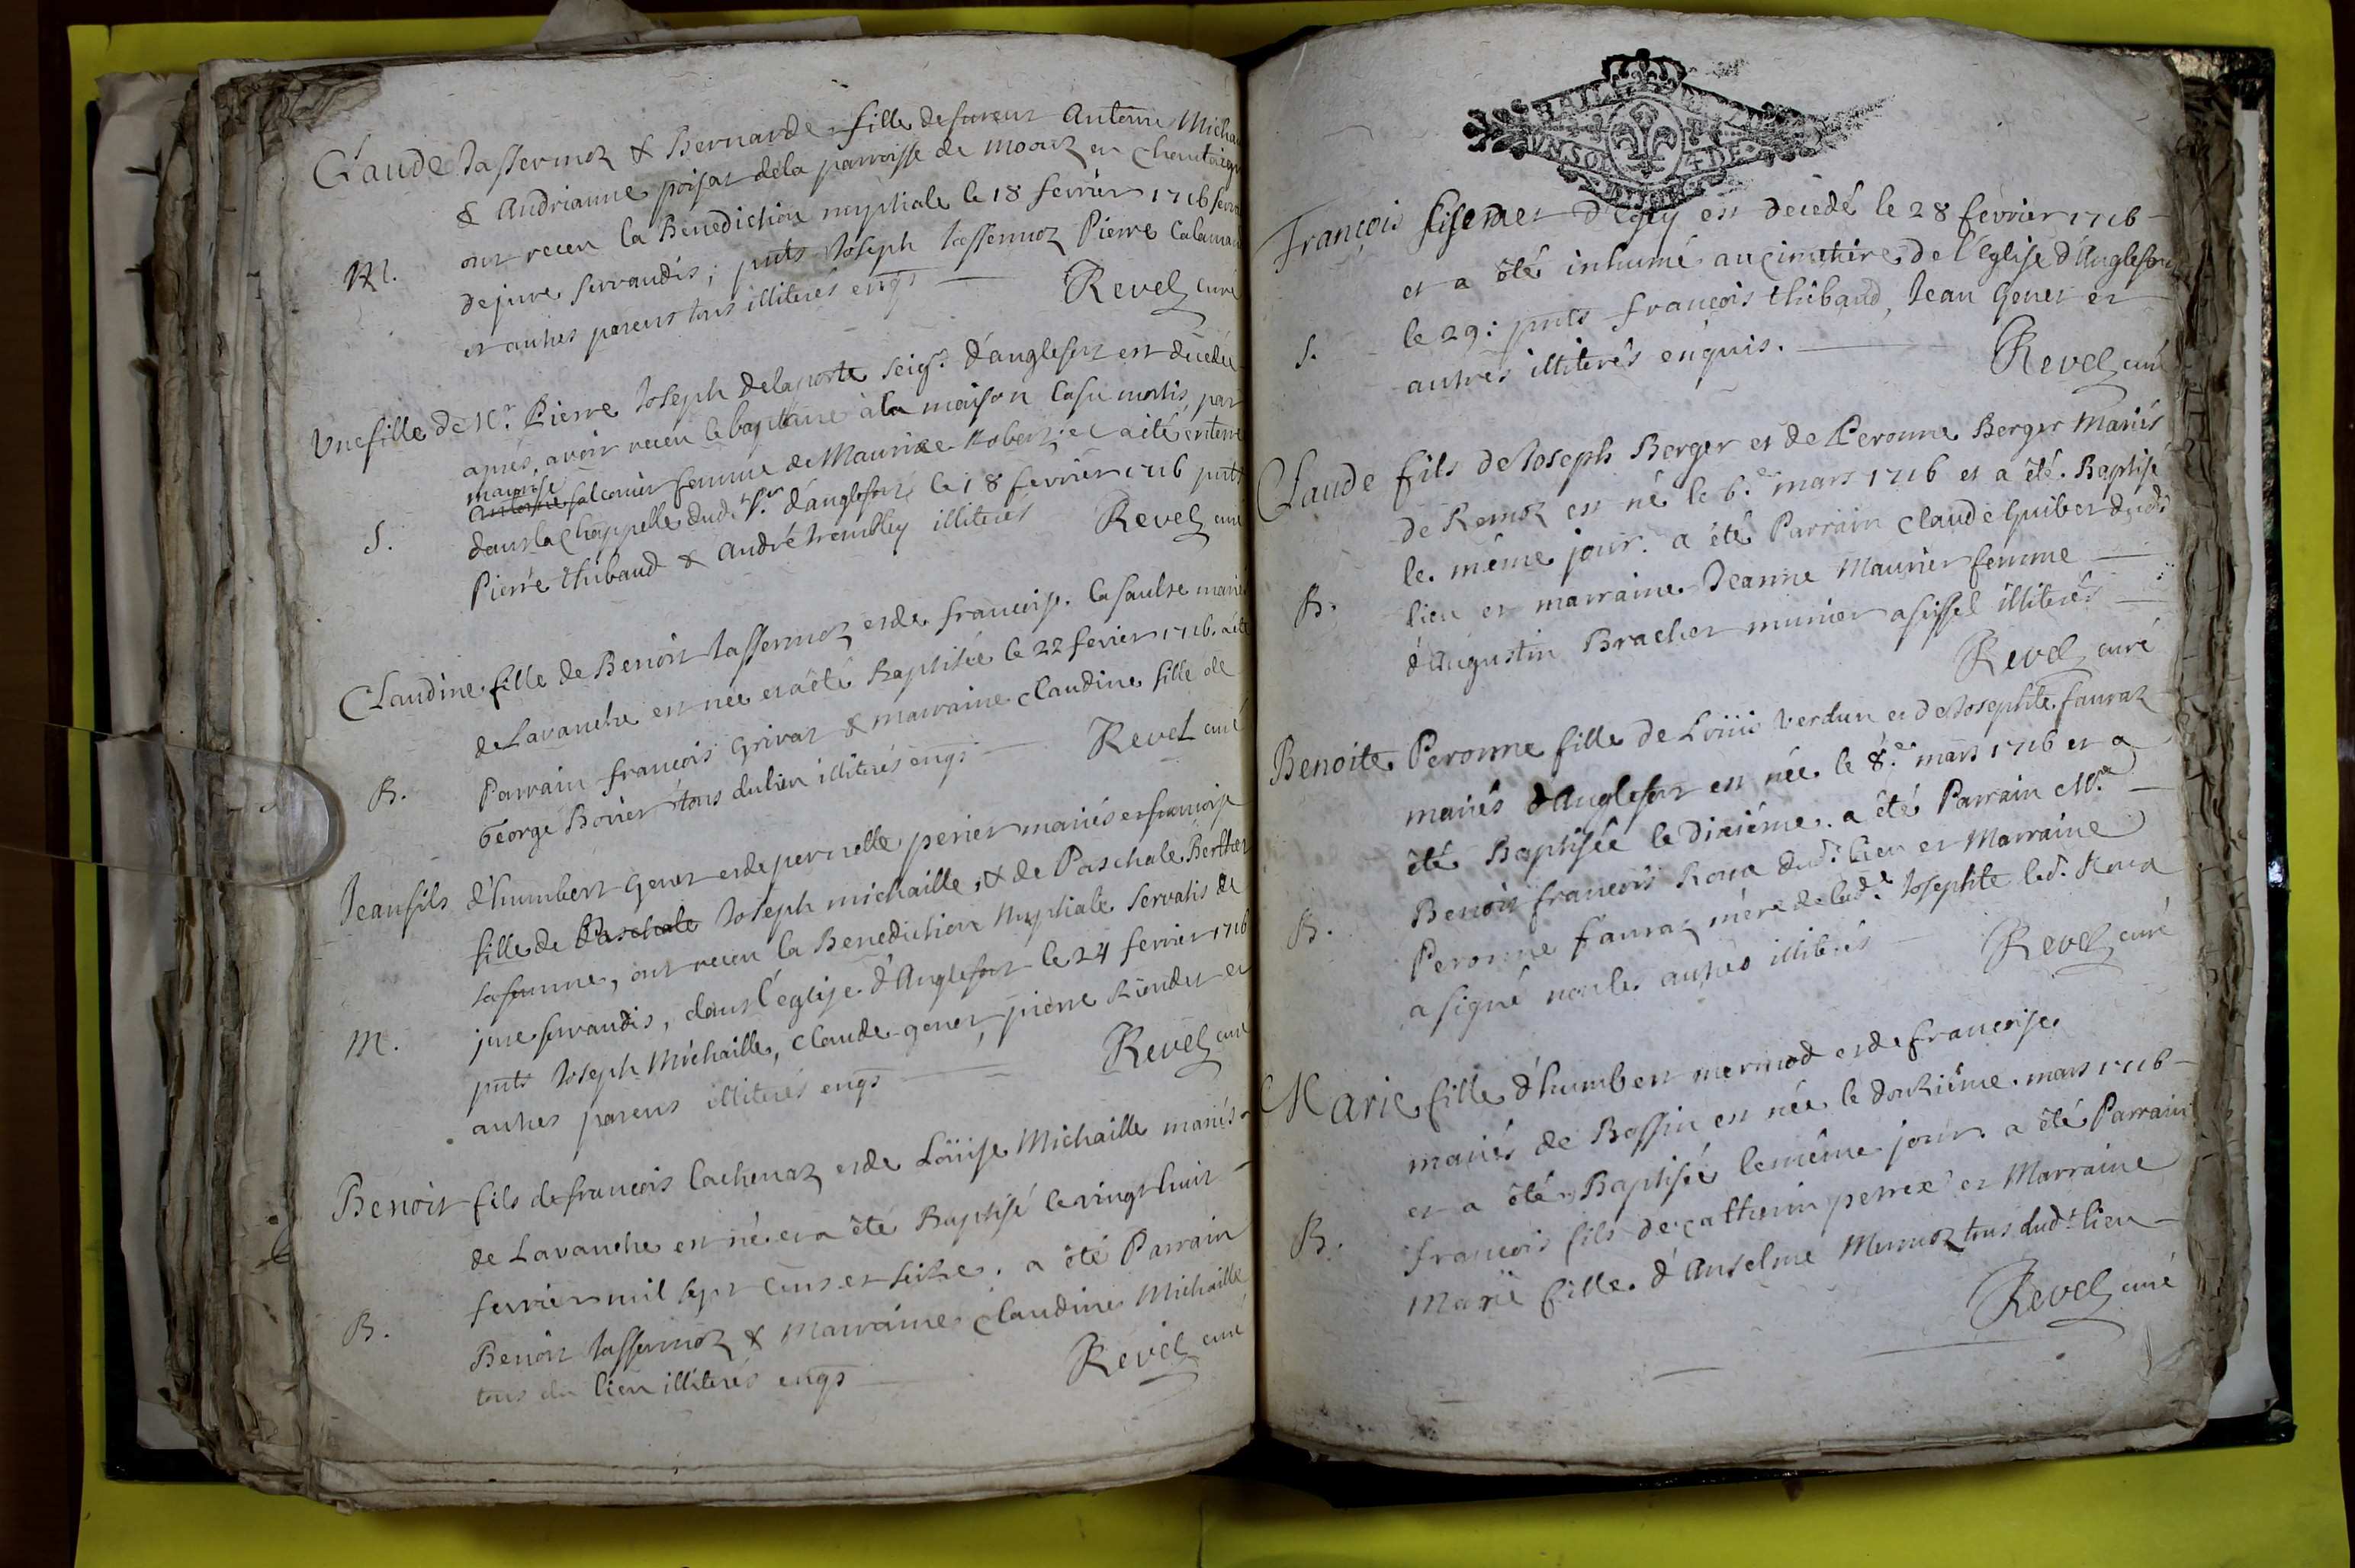 Claude Jassermoz & Bernarde fille de fureur Antoine Micha
& Andrianne poisat dela parroisse de Moatz en Chautaign
ont receu la Benediction nuptiale le 18 fevrier 1716 serva
M.
dejure servandis; pnts Joseph Jassermoz Pierre Calaman
et autres parens tous illiterés enqs
Revel curé
Une fille de Mr. Pierre Joseph Delaporte seigr. d'anglefort est décédée
aprés avoir receu le baptême à la maison casu mortis par
maurise
Antoine falconier femme de Maurize Robert, et a été enterre
S.
dans la Chappelle dud. sr. d'anglefort le 18 fevrier 1716 pnts
Pierre thibaud & André trembley illiterés
Revel curé
Claudine fille de Benoit Jassermoz et de françoise lasaulse mariés
de Lavanche est née et a été Baptisée le 22 fevrier 1716. a été
B.
Parrain françois Grivaz & marraine Claudine fille de
George Bovier tous du lieu illiterés enqs
Revel curé
Jean fils d'humbert Genet et de pernelle perier mariés et françoise
fille de Paschale Joseph michaille, & de Paschale Berthet
sa femme, ont receu la Benediction Nuptiale servatis de
M.
jure servandis, dans l'eglise d'Anglefort le 24 fevrier 1716
pnts Joseph Michaille, Claude genet, pierre Riondet et
autres parens illiterés enqs
Revel curé
Benoit fils de françois lachenaz et de Loüise Michaille mariés
de Lavanche est né et a été Baptisé le vingt huit
fevrier mil sept cens et seize. a été Parrain
B.
Benoit Jassermoz & Marraine Claudine Michaille
tous du lieu illiterés enqs
Revel curé
François d'Egey est decedé le 28 fevrier 1716
et a été inhumé au cimetiere de l'Eglise d'Anglefort
le 29: pnts françois thibaud, Jean Genet et
S.
autres illiterés enquis.
Revel curé
Claude fils de Joseph Berger et de Peronne Berger Mariés
de Remoz est né le 6.e mars 1716 et a été Baptisé
le même jour. a été Parrain Claude Guibert dud.
B.
lieu et marraine Jeanne Maurier femme
d'Augustin Bracher munier a sissel illiterés
Revel curé
Benoite Peronne fille de Loüis Verdun et de Josephte favraz
mariés d'Anglefort est née le 8.e mars 1716 et a
été Baptisée le dixiéme. a été Parrain Mre
Benoit françois Roux dud. lieu et Marraine
B.
Peronne favraz mère de lad.e Josephte led. Roux
a signé non les autres illiterés
Revel curé
Marie fille d'humbert mermod et de françoise
mariés de Bossin est née le douziéme mars 1716
et a été Baptisée le même jour. a été Parrain
B.
françois fils de catherin perrex et Marraine
Marie fille d'Anselme Mermoz tous dud.t lieu
Revel curé